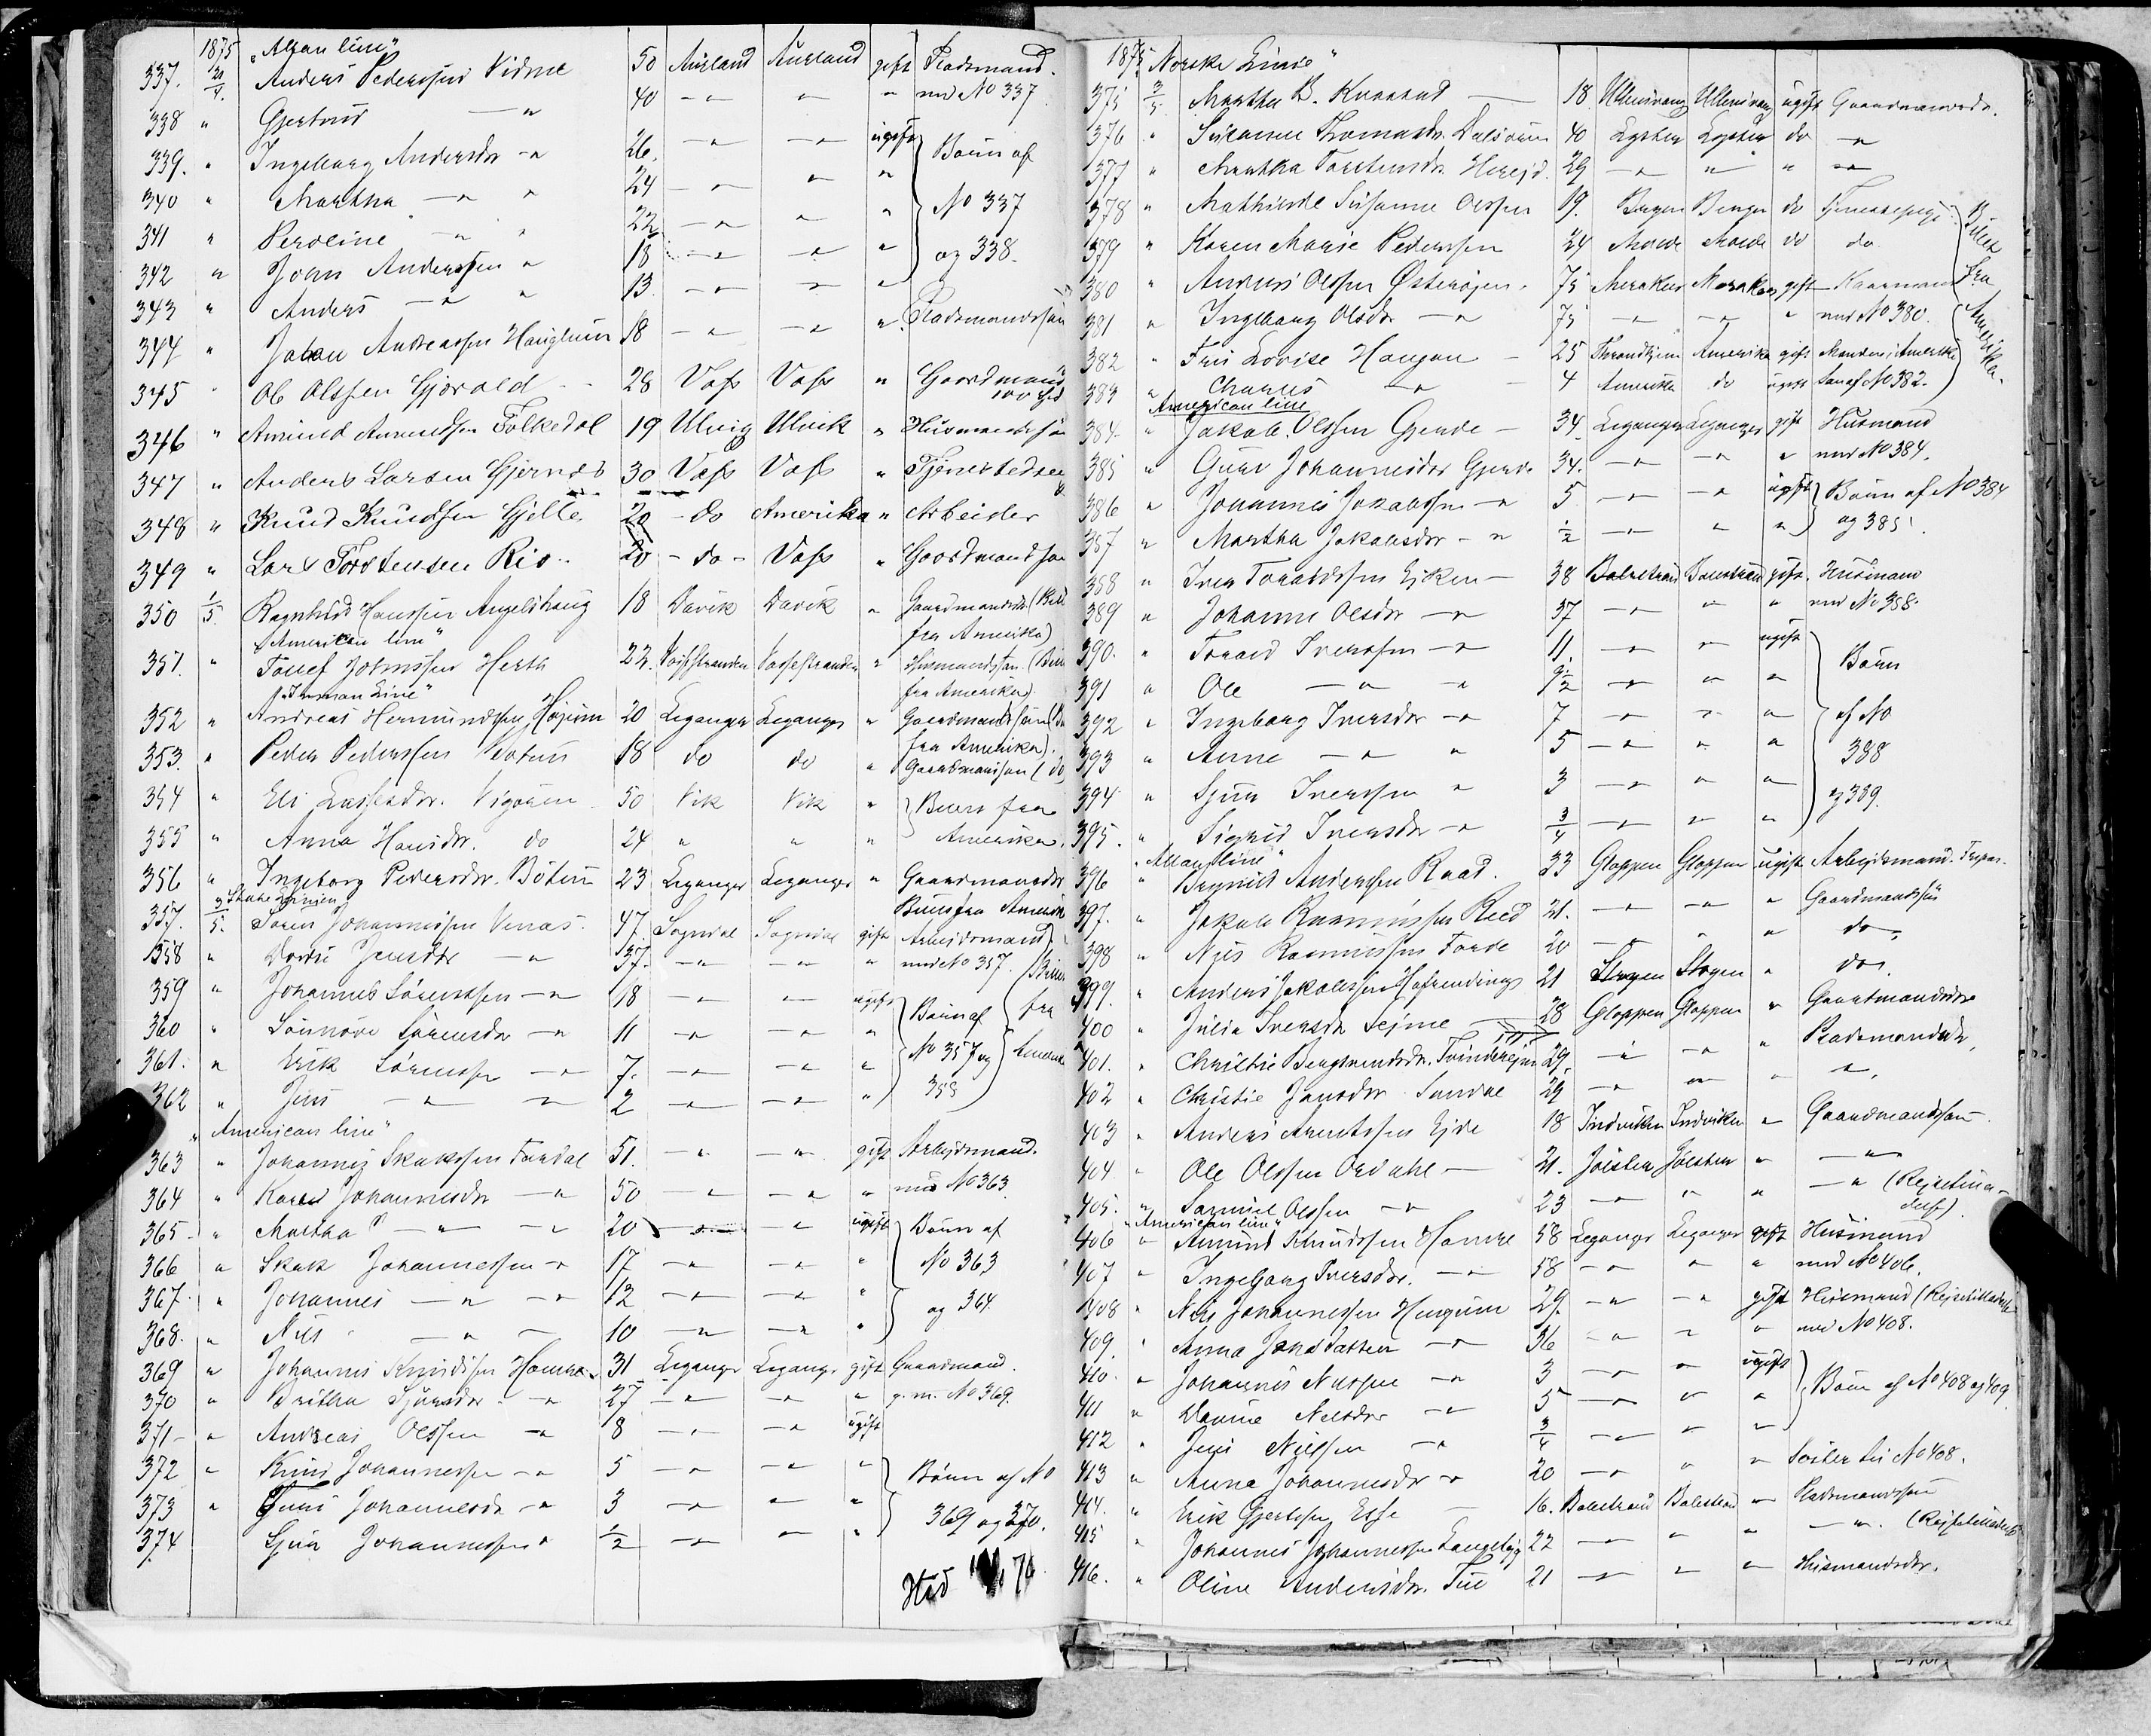 1875 "Allan line"
337. 20/4. Anders Pederssen Vidme 50 Aurland Aurland gift Pladsmand.
338 " Gjertrud — " 40 — " " " med No 337
339. " Ingeborg Andersdr — " 26. — " — " ugift Børn af
340 " Martha — " " 24 — " " "
341 " Peroline — " " 22 — " " " No 337
342 " John Anderssen " 18 — " — " " og 338.
343 " Anders — " " 13 — " " "
344 " Johan Andreassen Hauglum 18 — " — " " Pladsmandssøn
345 " Ole Olssen Gjørald 28 Voss Voss " Gaardmand
346 " Amund Amundssen Folkedal 19 Ulvig Ulvik " Husmandssøn
347 " Anders Larsen Gjernes 30 Voss Voss " Tjenestedreng
348 " Knud Knudssen Gjelle 20 – do Amerika " Arbeider
349 " Lars Torstensen Rio 20 – do – Voss " Gaardmandssøn
350 1/5. Ragnhild Hanssen Angelshaug 18 Davik Davik " Gaardmandsdr (Bill
"American line" fra Amerika)
351. " Tollef Johnssen Herth 22. Vossestranden Vossestranden " Husmandssøn. (Bill
"Inman Line" fra Amerika)
352 " Andreas Hermundssen Højum 20 Leganger Leganger " Gaardmandssøn (Bi
fra Amerika).
353. " Peder Pederssen Bøtun 18 do do " Gaardmandssøn (do)
354 " Eli Lassesdr. Vigøren 50 Vik Vik " Billet fra
355 " Anna Hansdr. do 24 " " " Amerika.
356 " Ingeborg Pedersdr. Bøtun 23 Leganger Leganger " Gaardmandsdr
State Linien Billet fra Amerik
357. 3/5. Søren Johannessen Venas 47 Sogndal Sogndal gift Arbejdsmand
358 " Dorthe Jensdtr — " 37. — " — " " med No 357. (Billet
359 " Johannes Sørenssen — " 18 — " — " ugift Børn af fra
360 " Sønnøve Sørensdr — " 11 — " — " "
361. " Erik Sørenssen — " 7. — " — " " No 357 og Amerik
362 " Jens — " — " 2 — " — " " 358
"American line"
363 " Johannes Skakssen Fardal 51. — " — " gift Arbejdsmand.
364 " Karen Johannesdr — " 50 — " — " " med No 363
365 " Martha — " — " 20 — " — " ugift Børn af
366 " Skak Johannessen — " 17 — " — " " No 363
367 " Johannes — " — " 12 — " — " " og 364
368. " Nils — " — 10 — " — " "
369 " Johannes Knudssen Hamre 31 Leganger Leganger gift Gaardmand.
370 " Brithe Sjursdr — " 27 — " — " " g. m. No 369.
371 – " Andreas Olssen — " 8 — " — " ugift
372 " Knud Johannessen — " 5 — " — " " Børn af No
373 " Guri Johannesdr — " 3 — " " "
374 " Sjur Johannessen " 1/2 — " — " 369 og 370.
1875 "Norske Linie"
375 3/5. Martha B. Kvæstad — 18 Ullensvang Ullensvang ugift Gaardmandsdr.
376 " Susanne Thomasdr. Dalsøren 40 Lyster Lyster do — "
377 " Martha Torstensdr. Herejd. 29 — " " " — "
378 " Mathilde Susanne Olssen 19. Bergen Bergen do Tjenestepige Billet
379 " Karen Marie Pederssen 24 Molde Molde do do
380 " Anders Olssen Østerøjen 75 Meraker Meraker gift Kaarmand fra
381 " Ingeborg Olsdr — " 75 — " — " " med No 380.
382 " Fru Lovise Haugan — 25 Throndhjem Amerika gift Manden i Amerika Amerika.
383 " Charles — " — 4 Amerika do ugift Søn af No 382.
American line
384 " Jakob Olssen Gjerde — 34 Leganger Leganger gift Husmand
385 " Guri Johannesdr Gjerde 34. — " — " " med No 384.
386 " Johannes Jakobssen — " 5 — " — " ugift Børn af No 384
387 " Martha Jakobsdr – " 1/2 — " " " og 385.
388 " Iver Toraldssen Ejken — 38 Balestrand Balestrand gift. Husmand
389 " Johanne Olsdr — " 37 — " " " med No 388.
390. " Torald Iverssen — " 11. — " " ugift Børn
391 " Ole — " — " 9 1/2 — " " "
392 " Ingeborg Iversdr — " 7 — " " " af No
393 " Anne — " " 5 — " " " 388
394 " Sjur Iverssen " 3 — " " " og 389.
395. " Sigrid Iversdr — " 3/4 — " " "
"Allan line"
396 " Brynild Anderssen Raad. 33 Gloppen Gloppen ugift Arbejdsmand.
397. " Jakob Rasmussen Reed 21. — " — " " Gaardmandssøn
398 " Nils Rasmussen Førde 20 — " " " do,
399. " Anders Jakobssen 21 Skogen Skogen " do,
400 " Julia Iversdr Sejme — 28 Gloppen Gloppen " Gaardmandsdr
401. " Christie Bengtsendsdr. Tvinderejm 29, — " — " " Pladsmandsdr,
402 " Christie Jansdr Sundal 29 — " " " ",
403 " Anders Arentssen Ejde 18 Indviken Indviken " Gaardmandssøn
404 " Ole Olssen Ordahl — 21. Jølster Jølster " — "
405. " Samuel Olssen — " 23 — " " " — " (Rejsetilladelse)
"American line"
406 " Amund Knudssen Hamre 58 Leganger Leganger gift Husmand
407 " Ingeborg Iversdr. — " 58 — " " " med No 406.
408 " Nils Johannessen Husum 29. — " — " gift Husmand (Rejsetilladelse
409. " Anna — " 36 — " " " med No 408.
410. " Johannes Nilssen — " 3 — " " ugift
411 " Davine Nilsdr — " 5 — " " " Børn af No 408 og 409
412 " Jens Nilssen — " 3/4 — " " "
413 " Anna Johannesdr " 20 — " " " Søster til No 408.
414. " Erik Gjertssen Esse — 16. Balestrand Balestrand " Pladsmandssøn
415 " Johannes Johannessen 22 — " " " — ". (Rejsetilladelse
416. " Oline Andersdr. Tue 21 — " " " Husmandsdr.